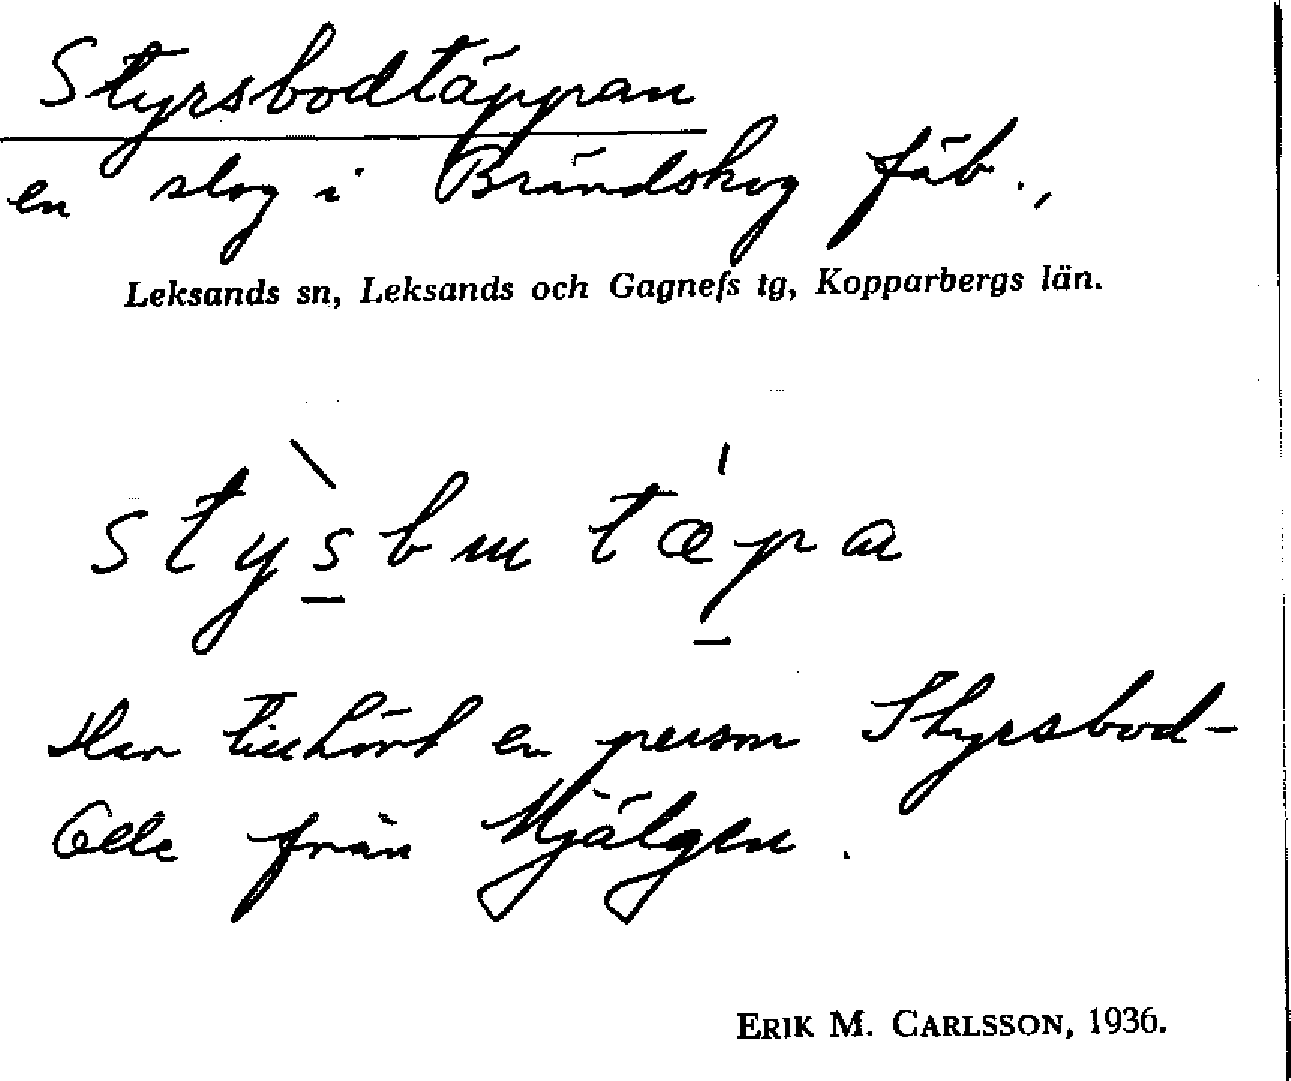 Styrsbodtäppan
en slog i Brändskog fäb.,
Leksands sn, Leksands och Gagnefs tg, Kopparbergs län.
stỳs̲bu tæ̍p̲a
Har tillhört en person Styrsbod-
Olle från Hjälgen.
ERIK M. CARLSSON, 1936.